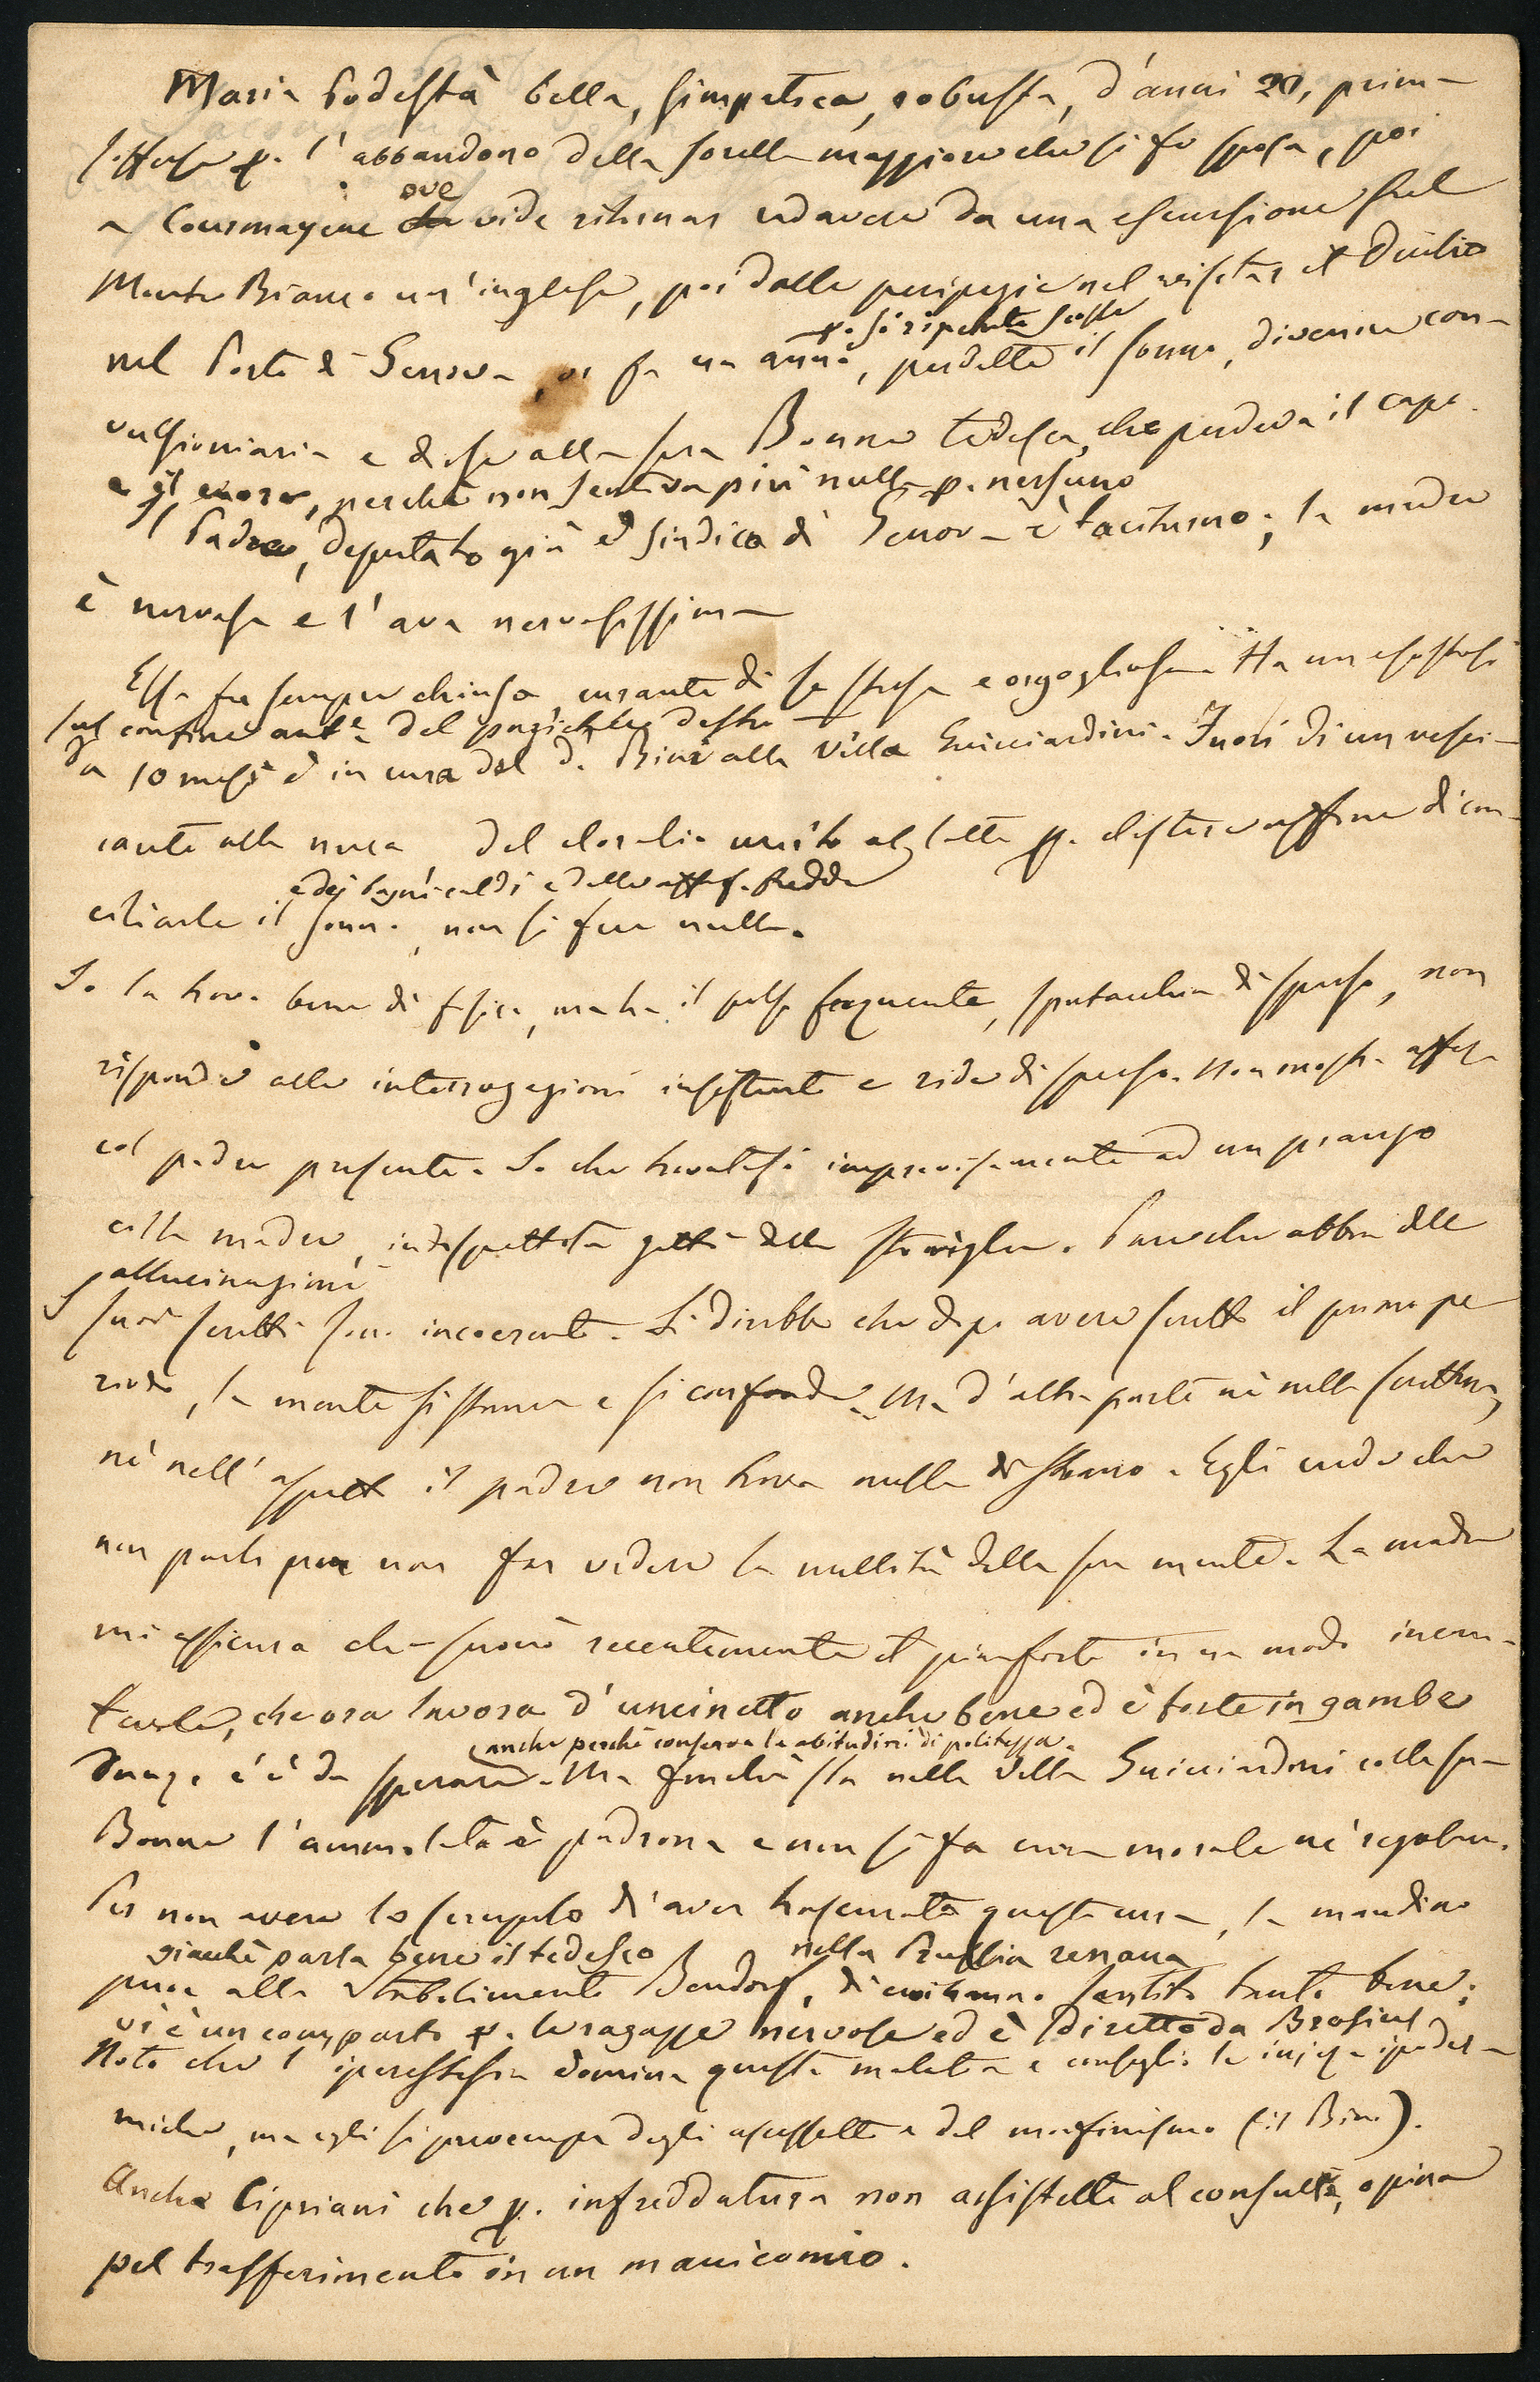 Maria Podestà bella, simpatica, robusta, d'anni 20, prima
sofferse p. l'abbandono della sorella maggiore che si fe sposa, poi
a Courmayeur ove vide ritornar cadavere da una escursione sul
Monte Bianco un'inglese, poi dalle peripezie nel visitar il Duilio
p. sì ripetute scosse
nel Porto di Genova, or fa un anno, perdette il sonno, divenne con-
vulsionaria e disse alla sua Bonne tedesca, che perdeva il capo
e il cuore, perchè non sentiva più nulla p. nessuno
Il Padre, deputato già e sindico di Genova è taciturno; la madre
è nervosa e l'ava nervosissima
Essa fu sempre chiusa, curante di se stessa e orgogliosa. Ha un esostosi
sul confine ant.e del parietale destro
Da 10 mesi è in cura del D. Bini alla Villa Guicciardini. Fuori di un vesci-
cante alla nuca, del cloralio unito al latte p. clistere affine di con-
e dei bagni caldi e delle affus. fredde
ciliarle il sonno, non si fece nulla.
Io la trovo bene di fisico, ma ha il polso frequente, sputacchia di spesso, non
risponde alle interrogazioni insistenti e ride di spesso. Non mostra affetto
col padre presente. So che trovatasi improvvisamente ad un pranzo
colla madre, indispettita gettò delle stoviglie. Pare che abbia delle
allucinazioni
I suoi scritti sono incoerenti. Si direbbe che dopo avere scritto il primo pe
riodo, la mente si stanca e si confonde. Ma d'altra parte nè nella scrittura,
nè nell'aspetto il padre non trova nulla di strano. Egli crede che
non parli per non far vedere la nullità della sua mente. La madre
mi assicura che suonò recentemente il pianforte in un modo incan-
tevole, che ora lavora d'uncinetto anche bene ed è forte in gambe
anche perchè conserva le abitudini di politezza.
Dunque c'è da sperare. Ma finchè sta nella Villa Guicciardini colla sua
Bonne l'ammalata è padrona e non si fa cura morale nè regolare.
Per non avere lo scrupolo d'aver trascurata questa cura, la mandino
giacchè parla bene il tedesco nella Prussia renana
pure allo Stabilimento Bendorf, di cui hanno sentito tanto bene;
vi è un comparto p. le ragazze nervose ed è diretto da Brosius
Noto che l'iperestesia domina questa malata e consiglio le iniez. ipoder-
miche, ma egli si preoccupa degli ascessetti e del morfinismo (il Bini).
Anche Cipriani che p. infreddatura non assistette al consulto, opina
pel trasferimento in un manicomio.